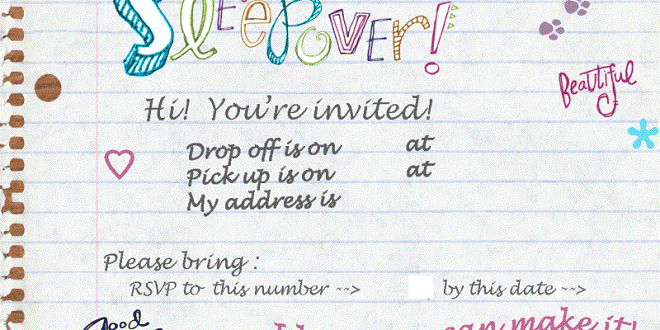 Sleepover!
Beautiful
Hi! You're invited!
Drop off is on at
Pick up is on at
My address is
Please bring :
RSVP to this number --> by this date -->
Good
can make it!